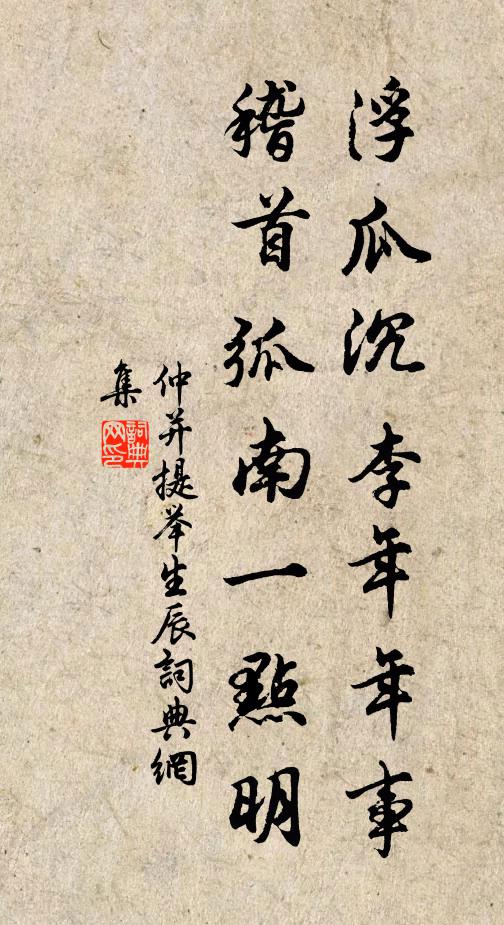 浮瓜沉李年年事
稽首弧南一點明
仲并提举生辰詞典網
集
詞典
网印